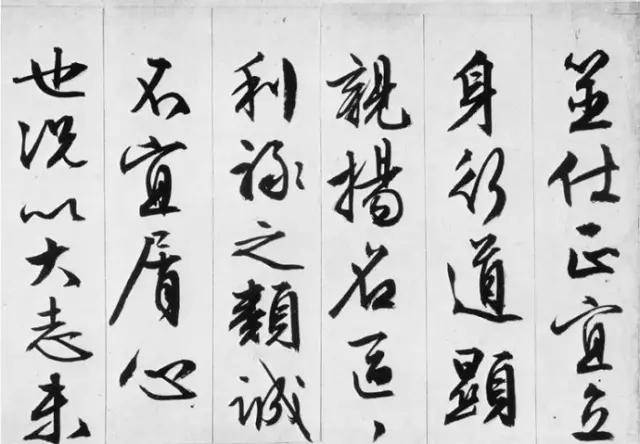 筮仕正宜立
身行道顯
親揚名區〻
利祿之類誠
不宜屑心
也况以大志未